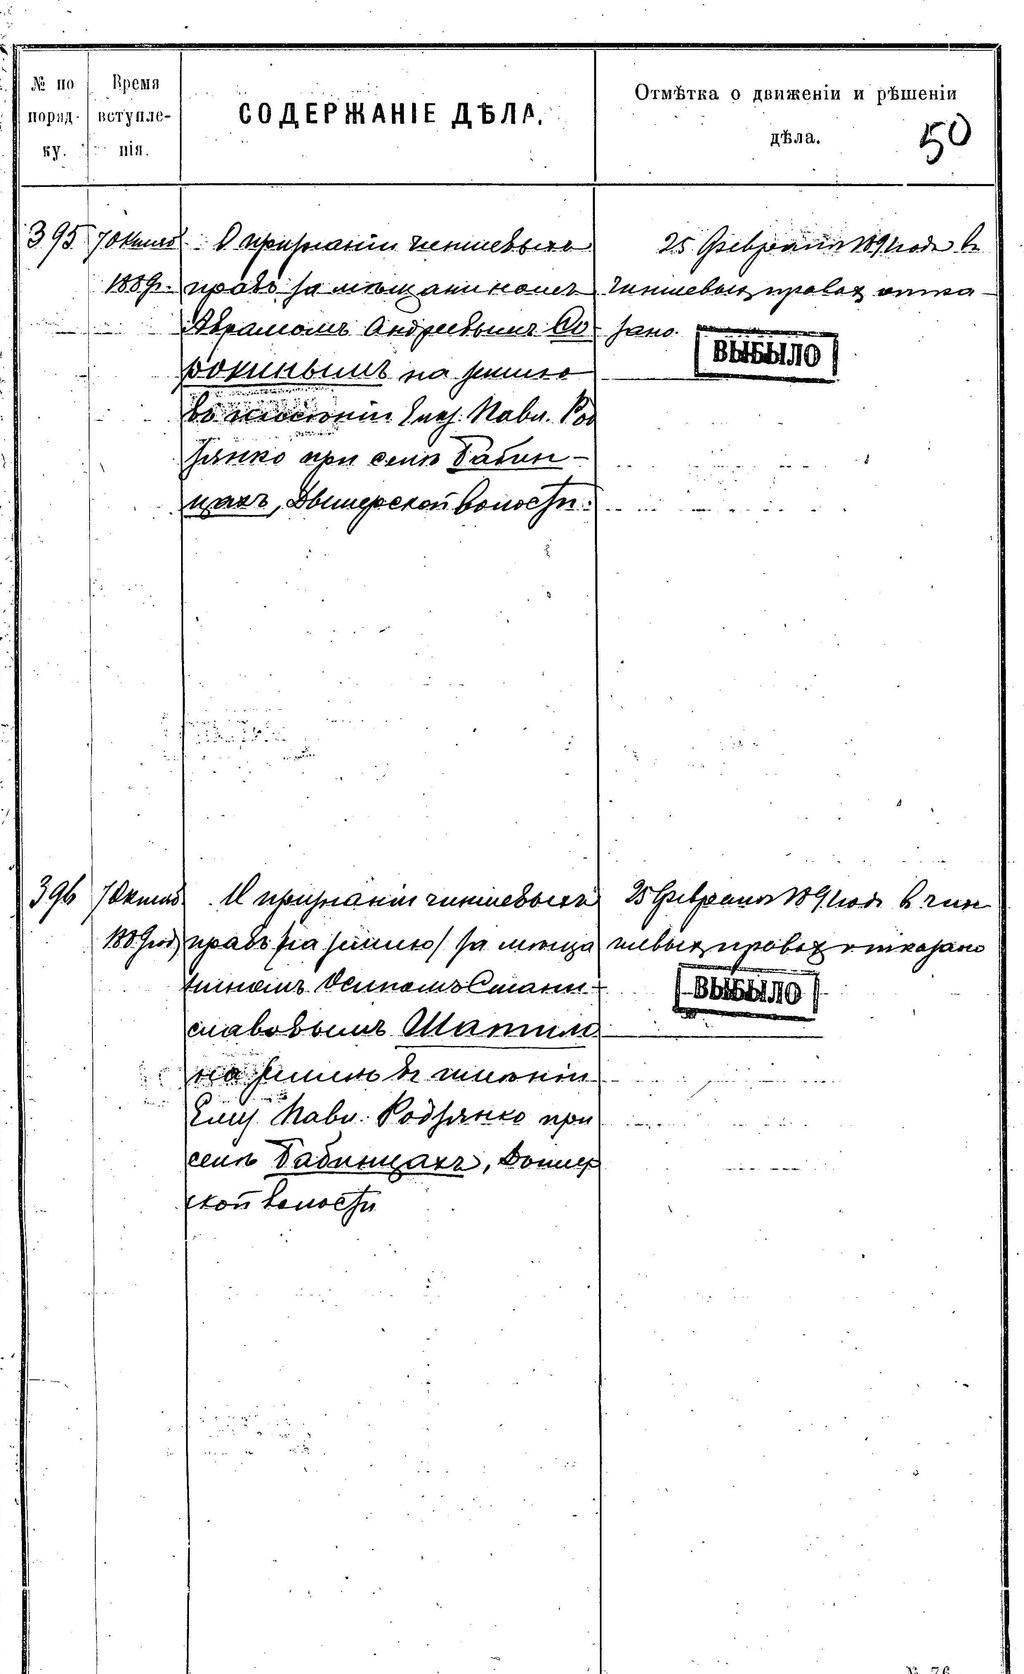 № по поряд- ку.
Время вступле- нія.
СОДЕРЖАНІЕ ДѢЛА.
Отмѣтка о движеніи и рѣшеніи дѣла.
50
395
7 Октяб
1889г.
О признаніи чиншевыхъ
правъ за мѣщаниномъ
Абрамомъ Андреевымъ Со
рокинымъ на землю
въ имѣніи Елиз. Павл. Род
зянко при селѣ Бабин-
цахъ, Дымерской волости.
25 Февраля 1891 года въ
чиншевыхъ правахъ отка-
зано.
ВЫБЫЛО
396
7 Октяб
1889 год
О признаніи чиншевыхъ
правъ /на землю/ за мѣща
ниномъ Осипомъ Стани-
славовымъ Шатило
на землю въ имѣніи
Елиз Павл. Родзянко при
селѣ Бабинцахъ, Дымер
ской волости
25 Февраля 1891 года въ чин
шевыхъ правахъ отказано
ВЫБЫЛО
№ 76